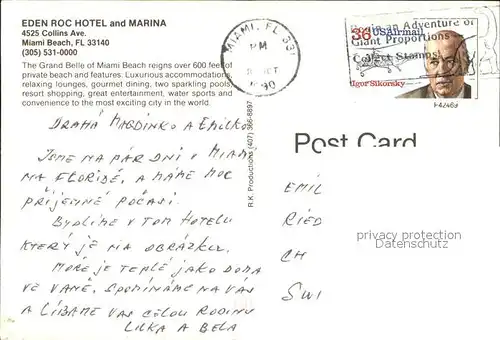 EDEN ROC HOTEL and MARINA
4525 Collins Ave.
Miami Beach, FL 33140
(305) 531-0000
The Grand Belle of Miami Beach reigns over 600 feet of
private beach and features: Luxurious accommodations,
relaxing lounges, gourmet dining, two sparkling pools,
resort shopping, great entertainment, water sports and
convenience to the most exciting city in the world.
MIAMI, FL 331
PM
90
Begin an Adventure of
Giant Proportions
Collect Stamps!
36 USAirmail
Igor Sikorsky
Post Card
R.K. Productions (407) 366-6897
DRAHÁ MAGDINKO A EMILKO
JSME NA PÁR DNÍ V MIAMI
NA FLORIDĚ, A MÁME MOC
PŘÍJEMNÉ POČASÍ.
BYDLÍME V TOM HOTELU
KTERÝ JE NA OBRÁZKU.
MOŘE JE TEPLÉ JAKO DOMA
VE VANĚ. SPOMÍNÁME NA VÁS
A LÍBÁME VAS CELOU RODINU
LILKA A BELA
EMIL
RIED
CH
SWI
privacy protection
Datenschutz